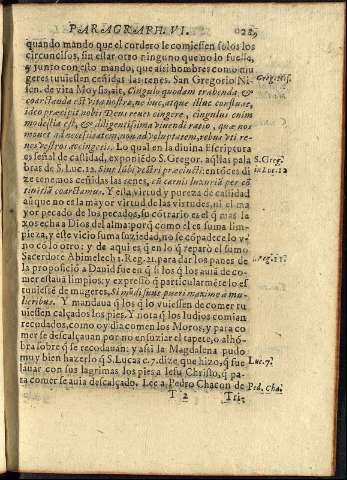 PARAGRAPH. VI.
quando mando que el cordero le comiessen solos los
circuncisos, sin estar otro ninguno que no lo fuesse,
y junto con esto mando, que assi hombres como mu
geres tuuiessen ceñidas las renes. San Gregorio Ni- Greg. Nis.
sen. de vita Moysis, ait, Cingulo quodam trabenda &
coarctanda est vita nostra, ne huc, atque illuc confluat,
ideo præcipit nobis Deus renes cingere, cingulus enim
modestia est, & diligentissima viuendi ratio, quæ nos
mouet ad necessitatem, non ad voluptatem, rebus vti re-
nes vestros accingetis. Lo qual en la diuina Escriptura
es señal de castidad, exponiẽdo S. Gregor. aq̃llas pala S. Greg.
bras de S. Luc. 12. Sint lũbi vestri præcincti: entõces di in Luc. 12
ze tenemos ceñidas las renes, cũ carnis luxuriã per cõ
tinẽtiã coarctamus. Y esta virtud y pureza de castidad
aũ que no es la mayor virtud de las virtudes, ni el ma
yor pecado de los pecados, su cõtrario es el q̃ mas la
xos echa a Dios del alma: porq̃ como el es suma lim-
pieza, y este vicio suma suziedad, no se cõpadece lo v-
no cõ lo otro: y de aqui es q̃ en lo q̃ reparò el sumo
Sacerdote Abimelech 1. Reg. 21. para dar los panes de 1. Reg. 21.
la proposiciõ a Dauid fue en q̃ si los q̃ los auiã de co-
mer estauã limpios: y expressò q̃ particularmẽte lo es
tuuiessẽ de mugeres, Si mũdi sunt pueri maximè à mu-
lieribus. Y mandaua q̃ los q̃ lo vuiessen de comer tu
uiessen calçados los pies. Y nota q̃ los Iudios comian
recodados, como oy dia comen los Moros, y para co
mer se descalçauan por no ensuziar el tapete, o alhõ-
bra sobre q̃ se recodauan: y assi la Magdalena pudo
muy bien hazerlo q̃ S. Lucas c. 7. dize que hizo, q̃ fue Luc. 7.
lauar con sus lagrimas los pies a Iesu Christo, q̃ pa-
ra comer se auia descalçado. Lee a Pedro Chacon de Ped. Cha.
T 2 Tri-